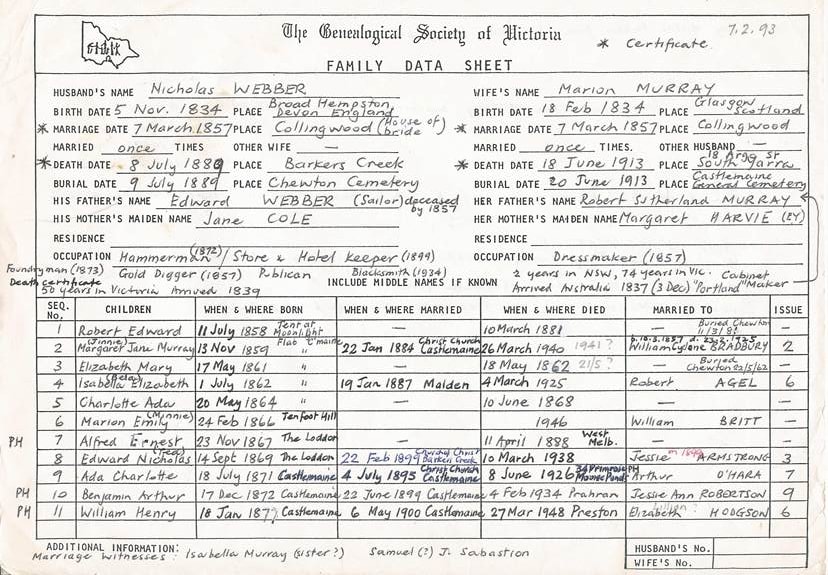 7.2.93
The Genealogical Society of Victoria
* Certificate
FAMILY DATA SHEET
HUSBAND'S NAME Nicholas WEBBER
BIRTH DATE 5 Nov. 1834 PLACE Broad Hempston Devon England
* MARRIAGE DATE 7 March 1857 PLACE Collingwood (House of bride)
MARRIED once TIMES OTHER WIFE —
* DEATH DATE 8 July 1889 PLACE Barkers Creek
BURIAL DATE 9 July 1889 PLACE Chewton Cemetery
HIS FATHER'S NAME Edward WEBBER (Sailor) deceased by 1857
HIS MOTHER'S MAIDEN NAME Jane COLE
RESIDENCE
OCCUPATION Hammerman (1872) / Store & Hotel Keeper (1899)
Foundryman (1873) Gold Digger (1857) Publican Blacksmith (1934)
Death certificate
50 years in Victoria Arrived 1839
WIFE'S NAME Marion MURRAY
BIRTH DATE 18 Feb 1834 PLACE Glasgow Scotland
* MARRIAGE DATE 7 March 1857 PLACE Collingwood
MARRIED once TIMES. OTHER HUSBAND —
* DEATH DATE 18 June 1913 PLACE 18 Argo St South Yarra
BURIAL DATE 20 June 1913 PLACE Castlemaine General Cemetery
HER FATHER'S NAME Robert Sutherland MURRAY
HER MOTHER'S MAIDEN NAME Margaret HARVIE (EY)
RESIDENCE
OCCUPATION Dressmaker (1857)
2 years in NSW, 74 years in Vic. Cabinet Maker
Arrived Australia 1837 (3 Dec) "Portland"
INCLUDE MIDDLE NAMES IF KNOWN
SEQ. No. CHILDREN WHEN & WHERE BORN WHEN & WHERE MARRIED WHEN & WHERE DIED MARRIED TO ISSUE
1 Robert Edward 11 July 1858 Tent at Moonlight — 10 March 1881 — Buried Chewton 11/3/81
2 (Jinnie) Margaret Jane Murray 13 Nov 1859 Flat C'maine " 22 Jan 1884 Christ Church Castlemaine 26 March 1940 1941? b.10.3.1857 d. 23.2.1925 William BRADBURY 2
3 Elizabeth Mary 17 May 1861 " — 18 May 1862 21/5? — Buried Chewton 22/5/62
4 (Bela) Isabella Elizabeth 1 July 1862 " 19 Jan 1887 Malden 4 March 1925 Robert AGEL 6
5 Charlotte Ada 20 May 1864 " — 10 June 1868 —
6 Marion Emily (Minnie) 24 Feb 1866 Tenfoot Hill 1946 William BRITT —
PH 7 Alfred Ernest 23 Nov 1867 The Loddon — 11 April 1888 West Melb. —
8 Edward Nicholas (Ted) 14 Sept 1869 The Loddon 22 Feb 1899 Church of Christ Barkers Creek 10 March 1938 Jessie ARMSTRONG 3
9 Ada Charlotte 18 July 1871 Castlemaine 4 July 1895 Christ Church Castlemaine 8 June 1926 34 Primrose Moonee Ponds PH Arthur O'HARA 7
PH 10 Benjamin Arthur 17 Dec 1872 Castlemaine 22 June 1899 Castlemaine 4 Feb 1934 Prahran Jessie Ann ROBERTSON 9
PH 11 William Henry 18 Jan 187? Castlemaine 6 May 1900 Castlemaine 27 Mar 1948 Preston Lillian? Elizabeth HODGSON 6
ADDITIONAL INFORMATION:
Marriage Witnesses: Isabella Murray (sister?) Samuel (?) J. Sabastion
HUSBAND'S No.
WIFE'S No.